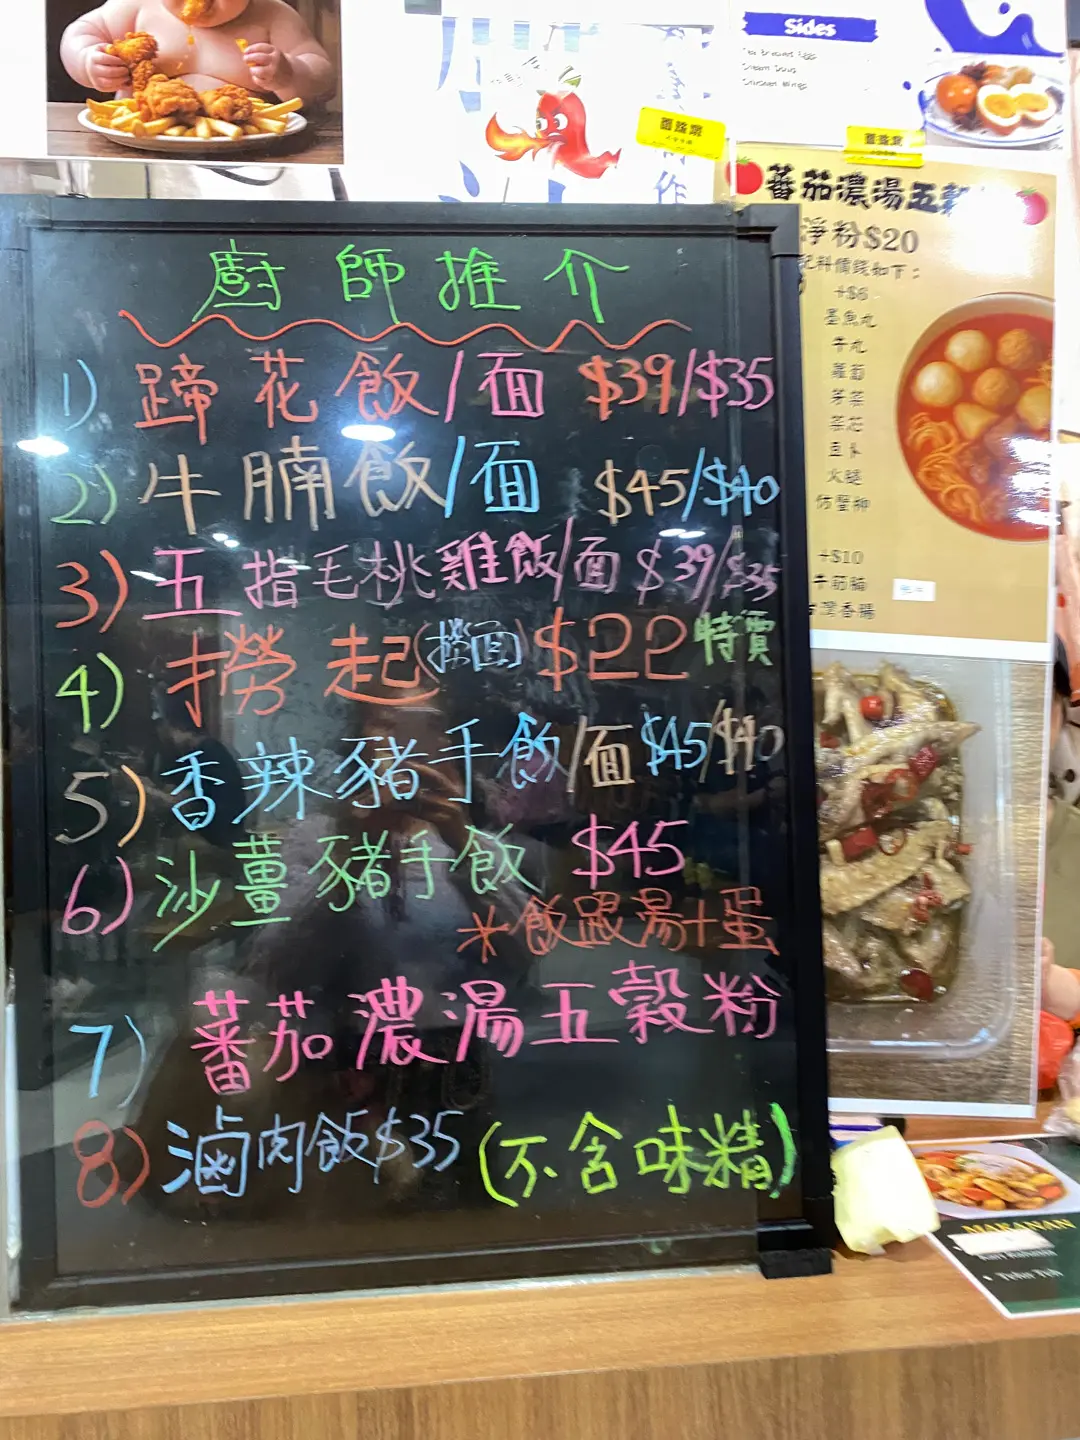 Sides
Tea Braised Eggs
Cream Doug
Chicken Wings
蕃茄濃湯五穀
淨粉$20
配料價錢如下：
+$6
墨魚丸
牛丸
蘿蔔
芽菜
菜芯
豆卜
火腿
仿蟹柳
+$10
牛筋腩
台灣香腸
廚師推介
1) 蹄花飯/面 $39/$35
2) 牛腩飯/面 $45/$40
3) 五指毛桃雞飯/面 $39/$35
4) 撈起(撈面) $22 特價
5) 香辣豬手飯/面 $45/$40
6) 沙薑豬手飯 $45
*飯跟湯+蛋
7) 蕃茄濃湯五穀粉
8) 滷肉飯$35 (不含味精)
MAKANAN